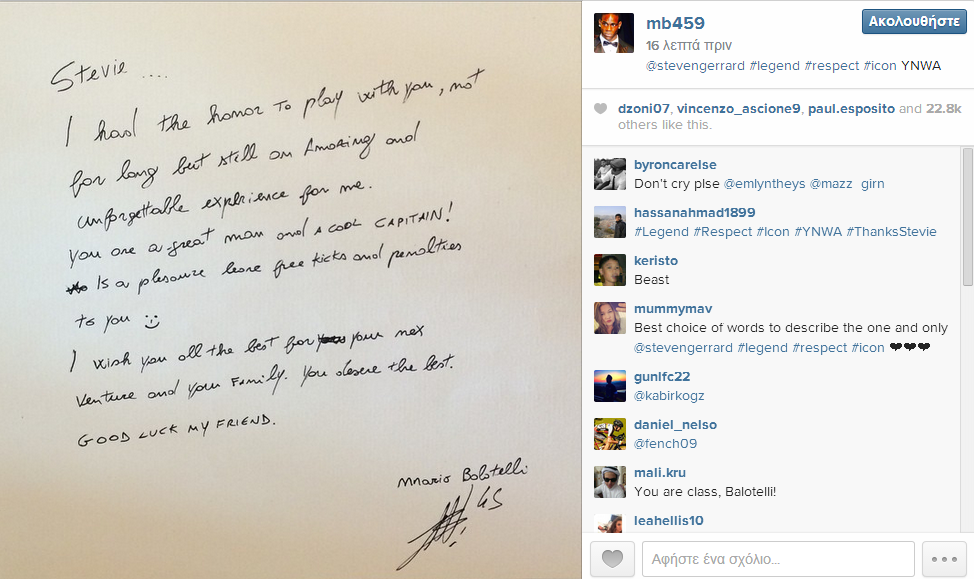 Stevie ....
I had the honor to play with you, not
for long but still an Amazing and
unforgettable experience for me.
You are a great man and A COOL CAPITAIN!
Is a pleasure leave free kicks and penalties
to you
I wish you all the best for your nex
venture and your FAMILY. You desere the best.
GOOD LUCK MY FRIEND.
Mario Balotelli
45
mb459
Ακολουθήστε
16 λεπτά πριν
@stevengerrard #legend #respect #icon YNWA
dzoni07, vincenzo_ascione9, paul.esposito and 22.8k
others like this.
byroncarelse
Don't cry plse @emlyntheys @mazz girn
hassanahmad1899
#Legend #Respect #Icon #YNWA #ThanksStevie
keristo
Beast
mummymav
Best choice of words to describe the one and only
@stevengerrard #legend #respect #icon ❤❤❤
gunlfc22
@kabirkogz
daniel_nelso
@fench09
mali.kru
You are class, Balotelli!
leahellis10
Αφήστε ένα σχόλιο...